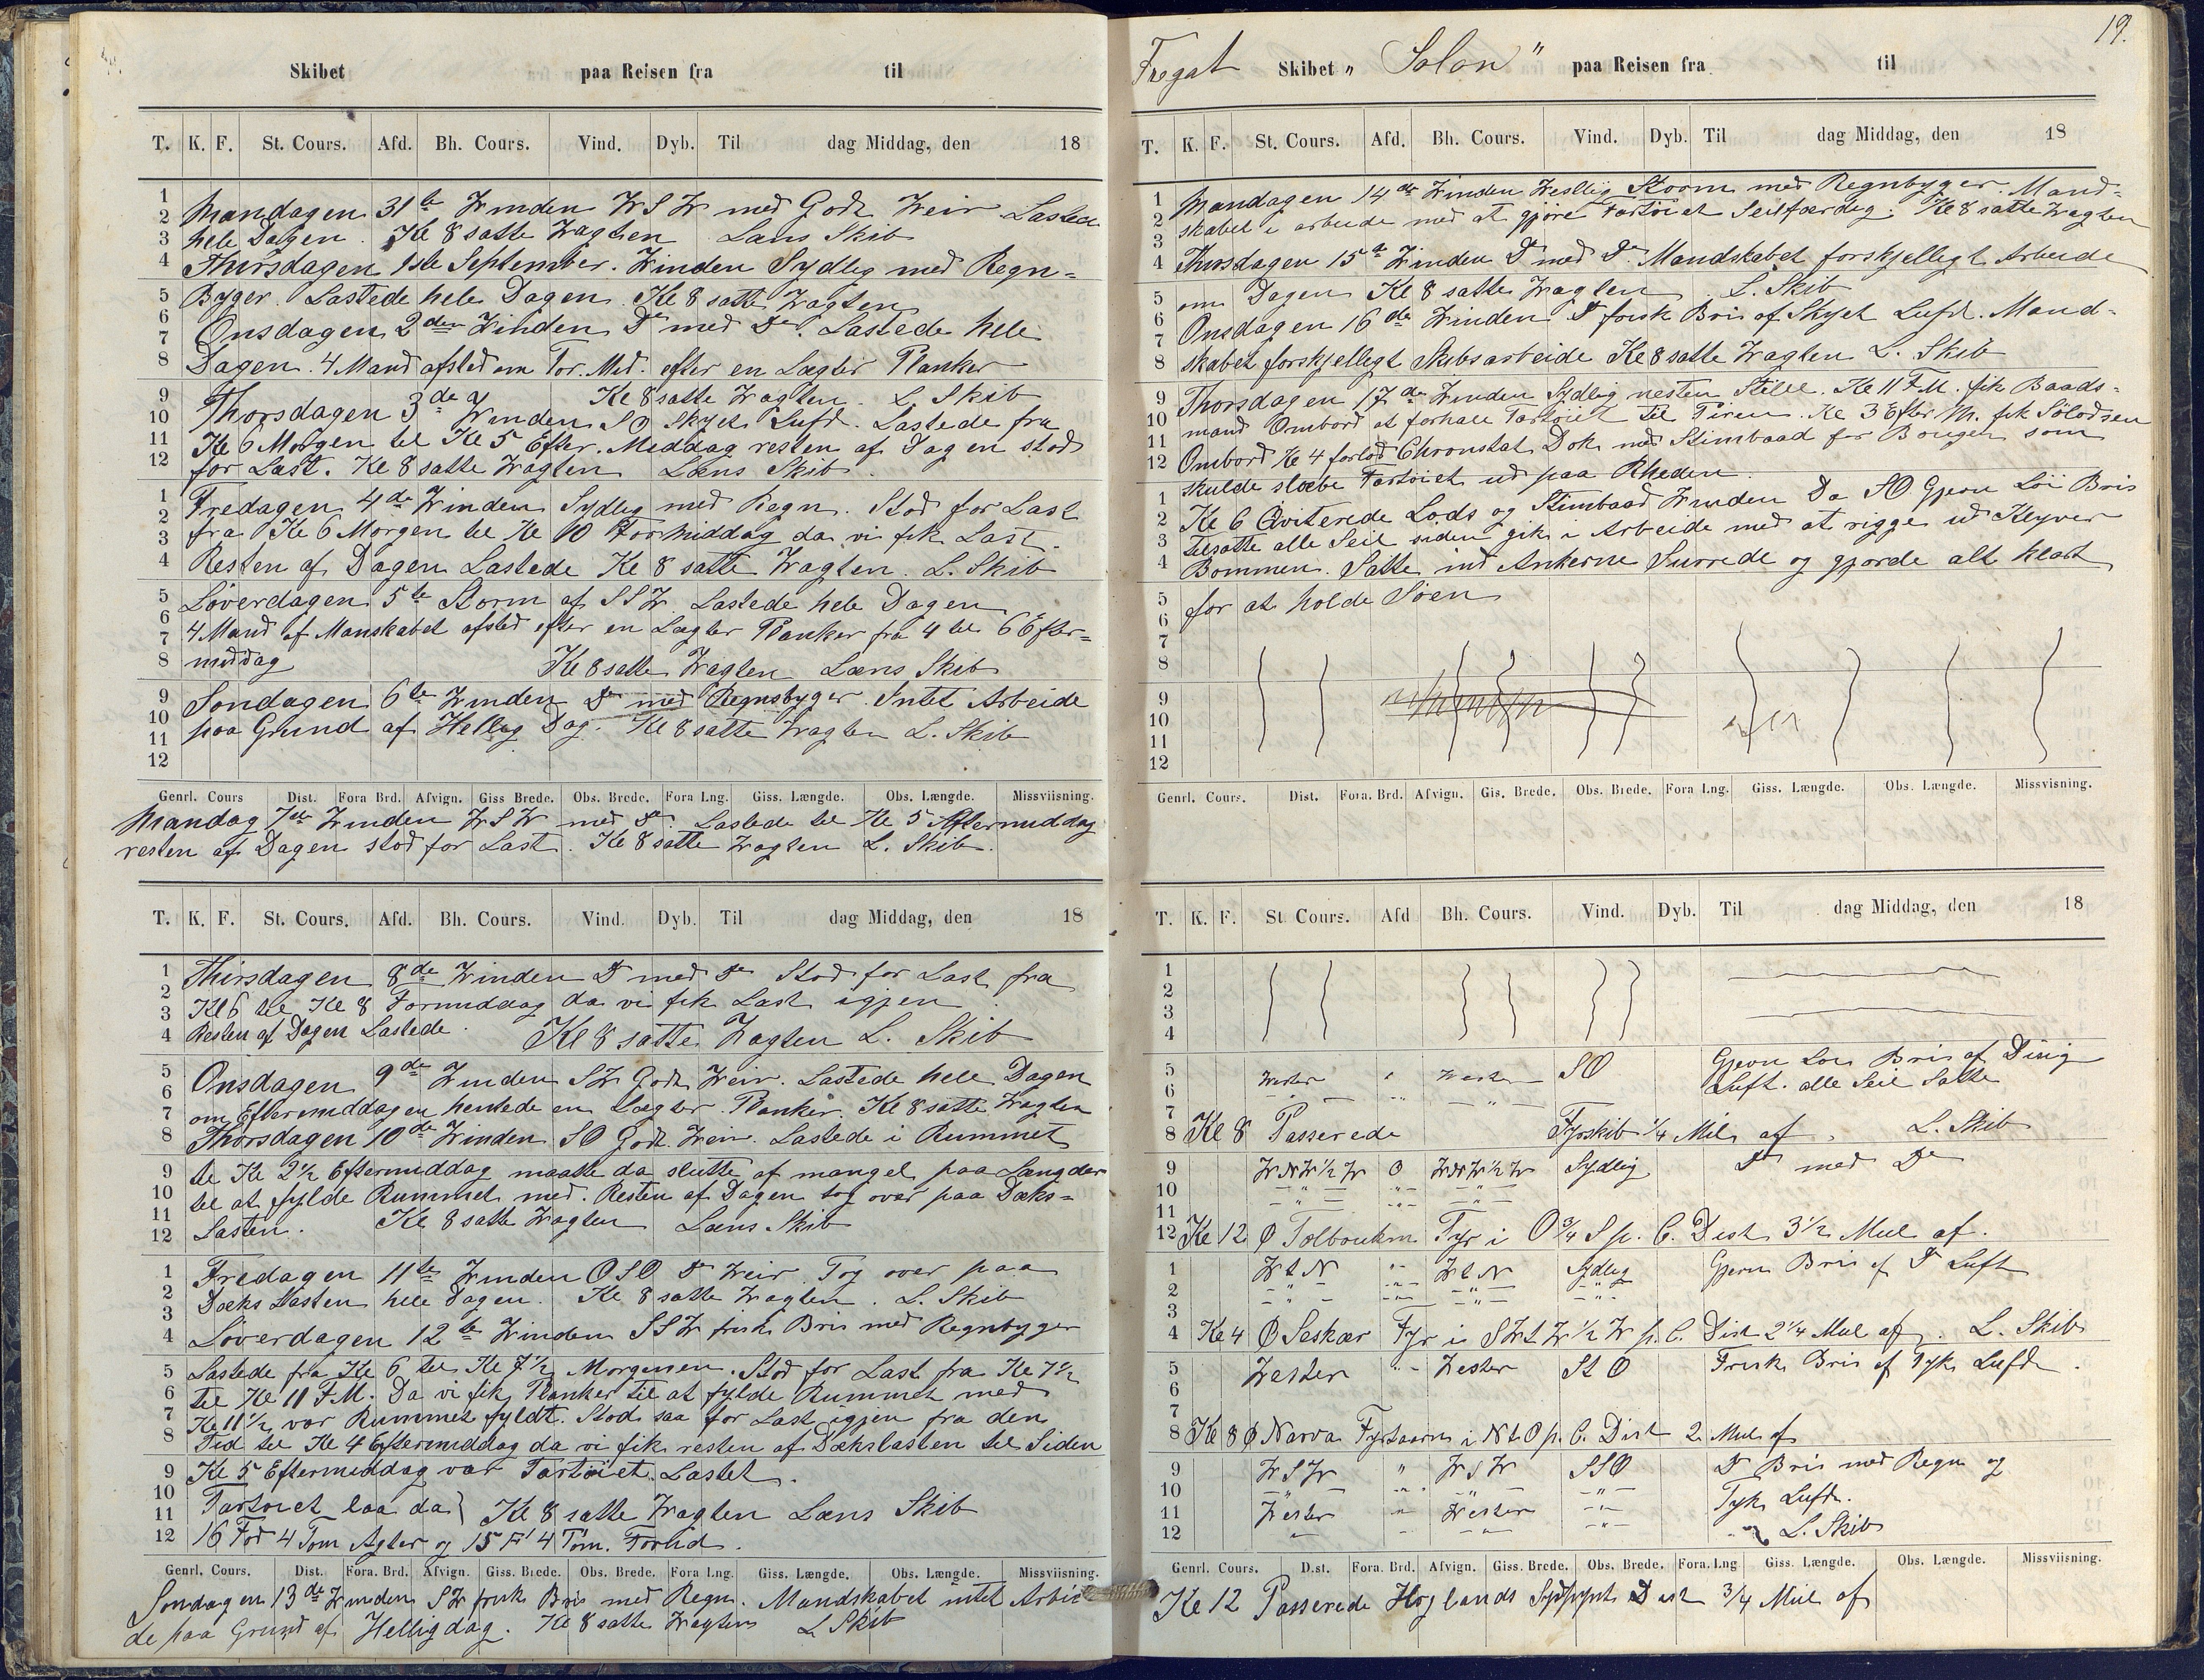 Skibet paa Reisen fra til
T. K. F. St. Cours. Afd. Bh. Cours. Vind. Dyb. Til dag Middag, den 18
1 2 3 4 5 6 7 8 9 10 11 12
1 2 3 4 5 6 7 8 9 10 11 12
Mandagen 31te Winden WSW med Godt Weir Lastede
hele Dagen. Kl 8 satte Wagten Læns Skib
Thirsdagen 1ste September. Winden Sydlig med Regn-
Byger. Lastede hele Dagen. Kl 8 satte Wagten
Onsdagen 2den Winden Do med Do. Lastede hele
Dagen. 4 Mand afsted om For. Med. efter en Lægter Planker
Kl 8 satte Wagten. L. Skib
Thorsdagen 3de Winden SO Skyet Luft. Lastede fra
Kl 6 Morgen til Kl 5 Efter. Meddag resten af Dagen stod
for Last. Kl 8 satte Wagten Læns Skib.
Fredagen 4de Winden Sydlig med Regn. Stod for Last
fra Kl 6 Morgen til Kl 10 Formiddag da vi fik Last.
Resten af Dagen Lastede Kl 8 satte Wagten. L. Skib
Löverdagen 5te Storm af SSW. Lastede hele Dagen
4 Mand af Manskabet afsted efter en Lægter Planker fra 4 til 6 Efter-
middag Kl 8 satte Wagten Læns Skib
Sondagen 6te Winden Do med Regnbyger. Intet Arbeide
paa Grund af Hellig Dag. Kl 8 satte Wagten L. Skib
Genrl. Cours Dist. Fora Brd. Afvign. Giss Brede. Obs. Brede. Fora Lng. Giss. Længde. Obs. Længde. Missviisning.
Mandag 7de Winden WSW med Do. Lastede til Kl 5 Aftermiddag
resten af Dagen stod for Last. Kl 8 satte Wagten L. Skib.
T. K. F. St. Cours. Afd. Bh. Cours. Vind. Dyb. Til dag Middag, den 18
1 2 3 4 5 6 7 8 9 10 11 12
1 2 3 4 5 6 7 8 9 10 11 12
Thirsdagen 8de Winden Do med Do Stod for Last fra
Kl 6 til Kl 8 Formiddag da vi fik Last igjen
Resten af Dagen Lastede. Kl 8 satte Wagten L. Skib
Onsdagen 9de Winden SW Godt Weir. Lastede hele Dagen
om Eftermiddagen hentede en Lægter Planker. Kl 8 satte Wagten
Thorsdagen 10de Winden SO Godt Weir. Lastede i Rummet
til Kl 2½ Eftermiddag maatte da slutte af mangel paa Langder
til at fylde Rummet med. Resten af Dagen tog over paa Dæks-
Lasten. Kl 8 satte Wagten Læns Skib
Fredagen 11te Winden OSO Do Weir. Tog over paa
Dæks Lasten hele Dagen. Kl 8 satte Wagten. L. Skib
Löverdagen 12te Winden SSW frisk Bris med Regnbyger
Lastede fra Kl 6 til Kl 7½ Morgenen. Stod for Last fra Kl 7½
til Kl 11 F.M. Da vi fik Planker til at fylde Rummet med
Kl 11½ var Rummet fyldt. Stod saa for Last igjen fra den
Tid til Kl 4 Eftermiddag da vi fik resten af Dækslasten til Siden
Kl 5 Eftermeddag var Fartöiet Lastet.
Fartöiet laa da } Kl 8 satte Wagten Læns Skib
16 Fod 4 Tom Agter og 15 F 4 Tom. Forud.
Genrl. Cours. Dist. Fora. Brd. Afvign. Giss. Brede. Obs. Brede. Fora Lng. Giss. Længde. Obs. Længde. Missviisning.
Sondagen 13de Winden SW frisk Bris med Regn. Mandskabet intet Arbei-
de paa Grund af Helligdag. Kl 8 satte Wagten L Skib
19.
Fregat Skibet „ Solon " paa Reisen fra til
T. K. F. St. Cours. Afd. Bh. Cours. Vind. Dyb. Til dag Middag, den 18
1 2 3 4 5 6 7 8 9 10 11 12
1 2 3 4 5 6 7 8 9 10 11 12
Mandagen 14de Winden Westlig Storm med Regnbyger. Mand-
skabet i arbeide med at gjöre Fartöiet Seilfærdig. Kl 8 satte Wagten
Thirsdagen 15te Winden Do med Do. Mandskabet forskjelligt Arbeide
om Dagen Kl 8 satte Wagten L. Skib
Onsdagen 16de Winden Do frisk Bris af Skyet Luft. Mand-
skabet forskjelligt Skibsarbeide Kl 8 satte Wagten L. Skib
Thorsdagen 17de Winden Sydlig nesten Stille. Kl 11 F.M. fik Baads-
mand Ombord at forhale Fartöiet til Piren. Kl 3 Efter M. fik Sölodsen
Ombord Kl 4 forlod Chronstat Dok med Stimbaad for Bougen som
skulde slæbe Fartöiet ud paa Rheden.
Kl 6 Qviterede Lods og Stimbaad Winden Da SO Gjevn Löi Bris
tilsatte alle Seil siden gik i Arbeide med at rigge ud Klyver
Bommen. Satte ind Ankerne Surrede og gjorde alt klart
for at holde Söen
Genrl. Cours. Dist. Fora. Brd. Afvign. Gis. Brede. Obs. Brede. Fora Lng. Giss. Længde. Obs. Længde. Missvisning.
T. K. F. St Cours. Afd Bh. Cours. Vind. Dyb. Til dag Middag, den 18
1
2
3
4
5 Wester " Wester SO Gjevn Löi Bris af Disig
6 Luft. alle Seil Satte
7
8 Kl 8 Passerede Fyrskib ¼ Mil af. L. Skib
9 WNW½W O WNW½W Sydlig Do med Do
10
11
12 Kl 12 Ø Tolboukin Fyr i O¾S p. C. Dist 3½ Mil af.
1 WtN " WtN Sydlig Gjevn Bris af Do Luft
2
3
4 Kl 4 Ø Seskær Fyr i SWtW½W p. C. Dist 2¼ Mil af. L. Skib
5 Wester " Wester StO Frisk Bris af Tyk Luft.
6
7
8 Kl 8 Ø Narva Fyrtaarn i NtO p. C. Dist 2 Mil af
9 WSW " WSW SSO Do Bris med Regn og
10 Tyk Luft.
11 Wester " Wester "
12 L. Skib
Genrl. Cours. Dist. Fora. Brd. Afvign. Giss. Brede. Obs. Brede. Fora. Lng Giss. Længde. Obs. Længde. Missviisning.
Kl 12 Passerede Hoglands Sydpynt Dist ¾ Mil af